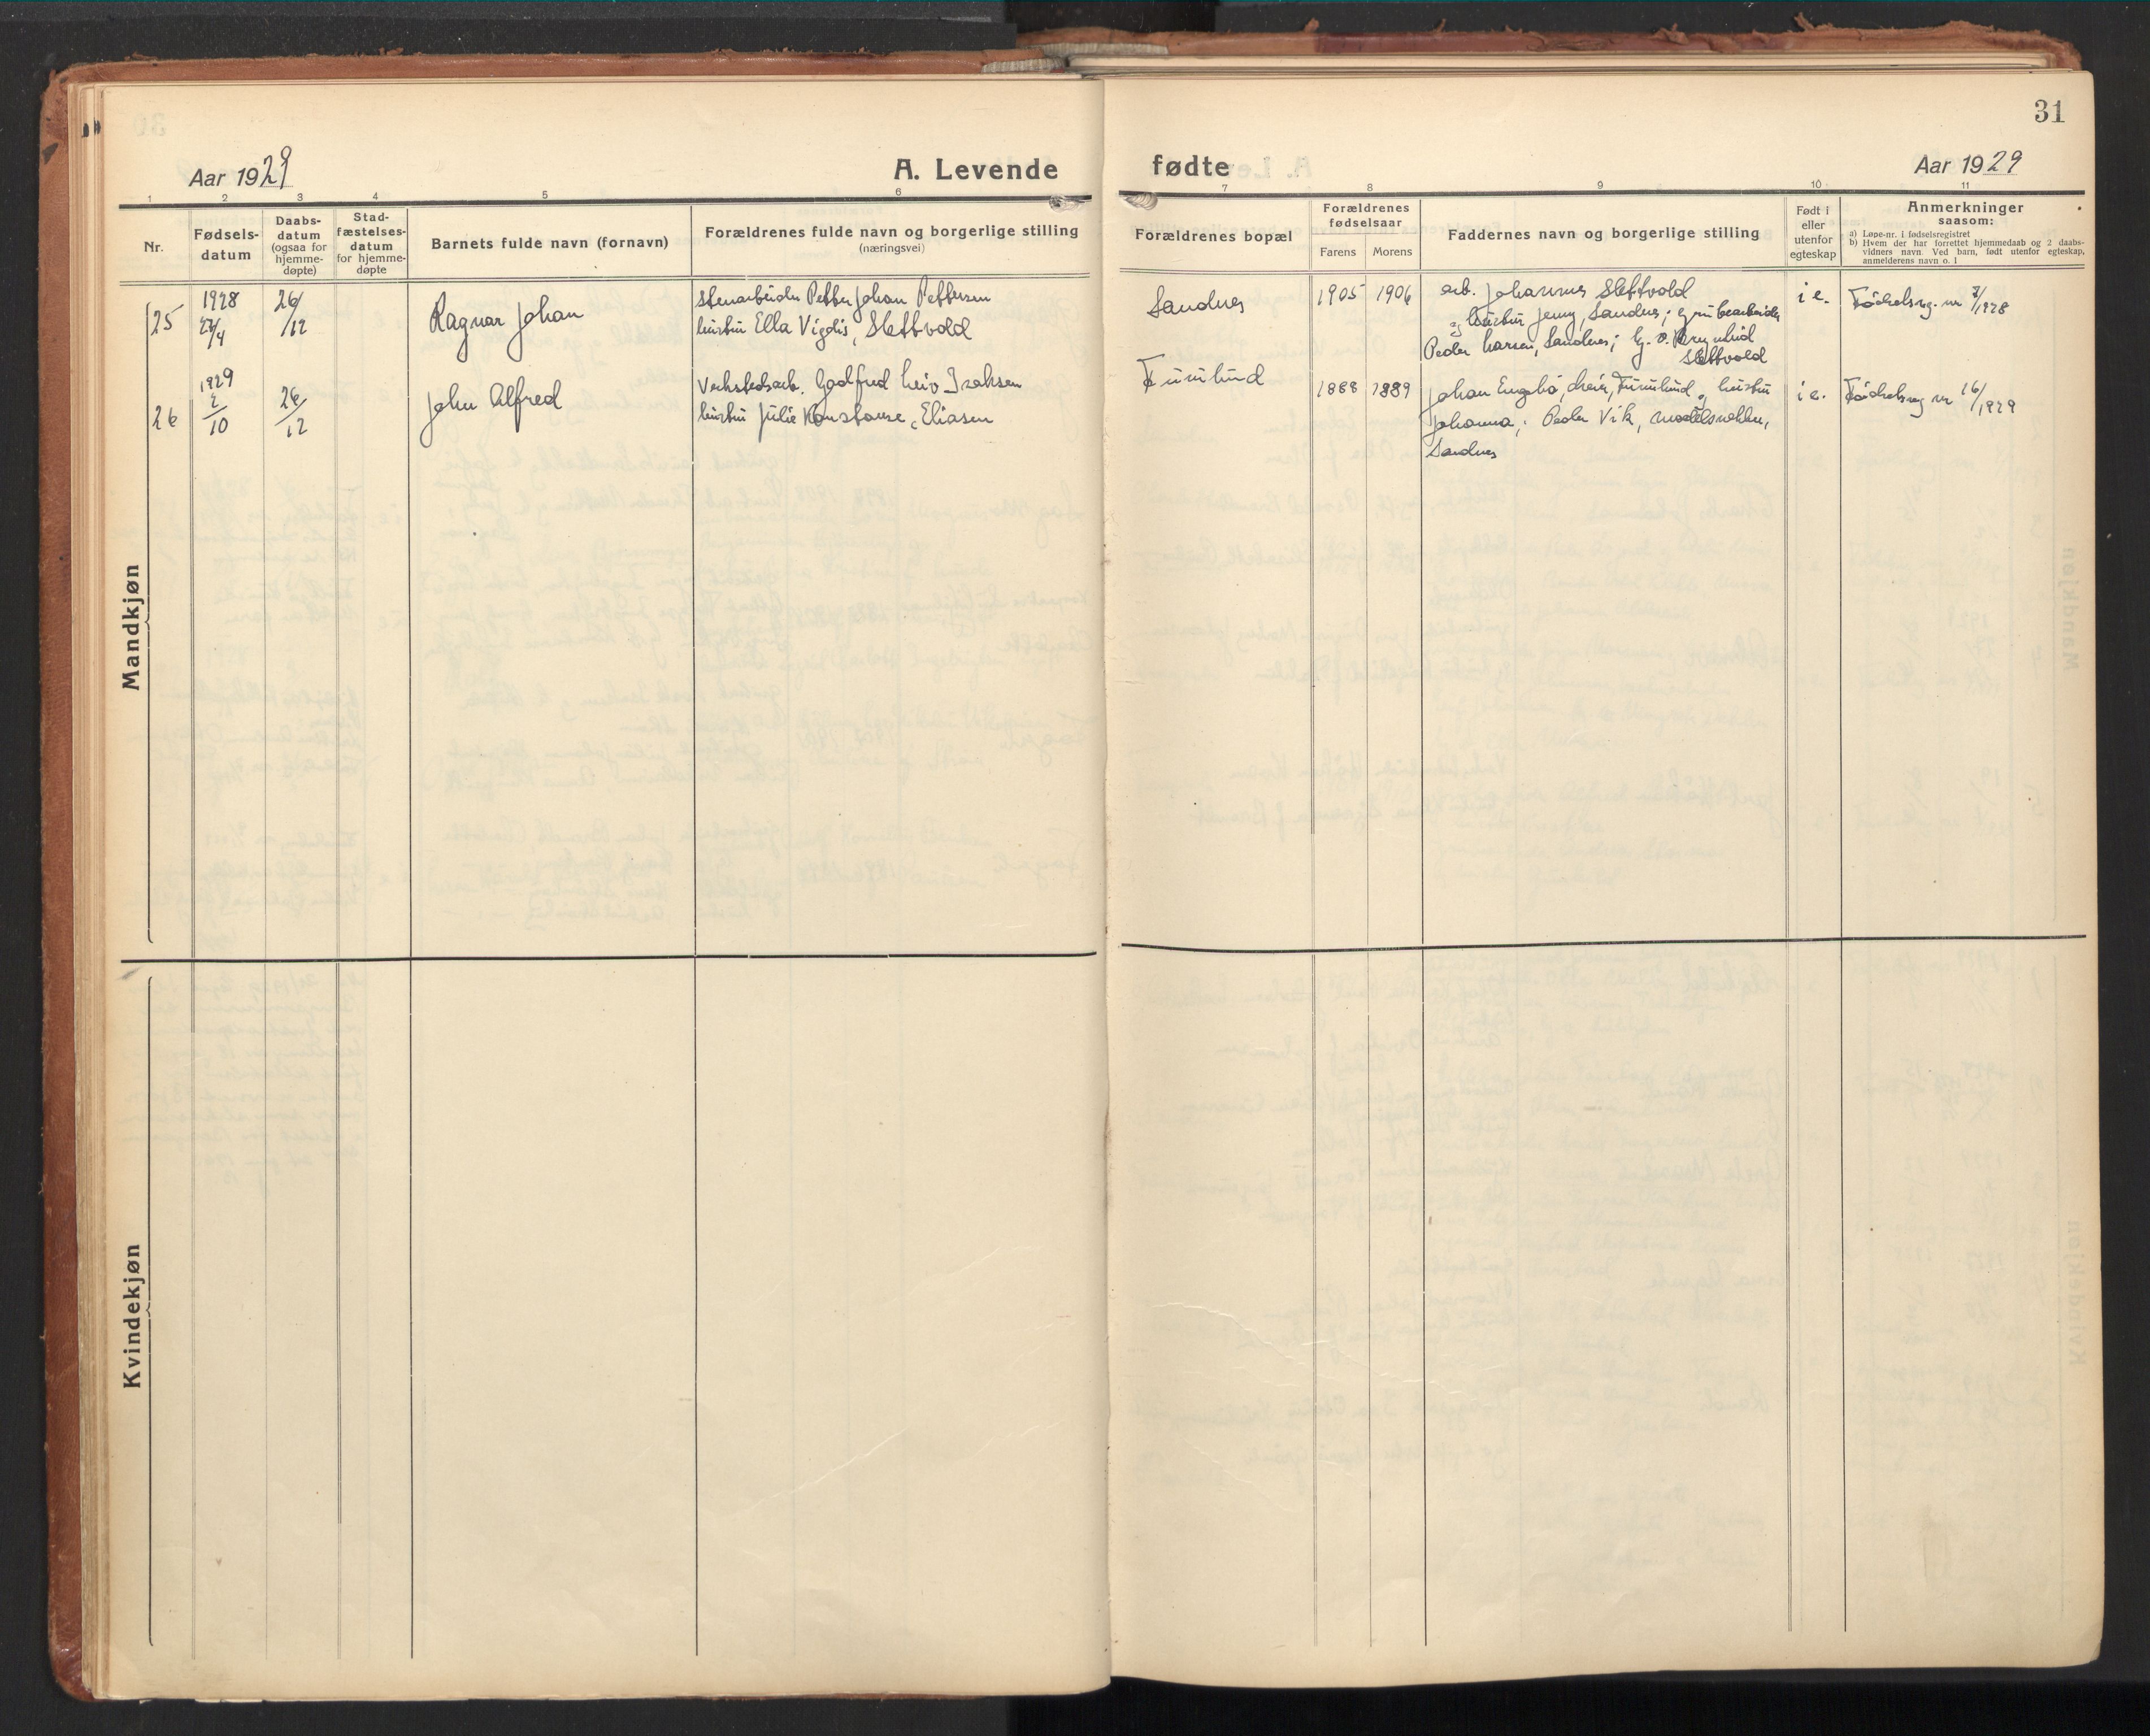 31
Aar 1929
A. Levende
fødte
Aar 1929
1 2 3 4 5 6 7 8 9 10 11
Nr.
Fødsels-
datum
Daabs-
datum
(ogsaa for
hjemme-
døpte)
Stad-
fæstelses-
datum
for hjemme-
døpte
Barnets fulde navn (fornavn)
Forældrenes fulde navn og borgerlige stilling
(næringsvei)
Forældrenes bopæl
Forældrenes
fødselsaar
Farens
Morens
Faddernes navn og borgerlige stilling
Født i
eller
utenfor
egteskap
Anmerkninger
saasom:
a) Løpe-nr. i fødselsregistret
b) Hvem der har forrettet hjemmedaab og 2 daabs-
vidners navn. Ved barn, født utenfor egteskap,
anmelderens navn o. l
Mandkjøn
25
1928
27/4
26/12
Ragnar Johan
Stenarbeider Petter Johan Pettersen
hustru Ella Vigdis, Slettvold
Sandnes
1905
1906
arb. Johannes Slettvold
og hustru Jenny, Sandnes; grubearbeider
Peder Larsen, Sandnes;
Slettvold
i e.
Fødselsreg. nr 7/1928
26
1929
2/10
26/12
John Alfred
Verkstedsarb. Godfred Leiv Isaksen
hustru Julie Konstanse, Eliasen
Furulund
1888
1889
Johan Engbø, Furulund og hustru
Johanna; Peder Vik,
Sandnes
i e.
Fødselsreg nr 16/1929
Kvindekjøn